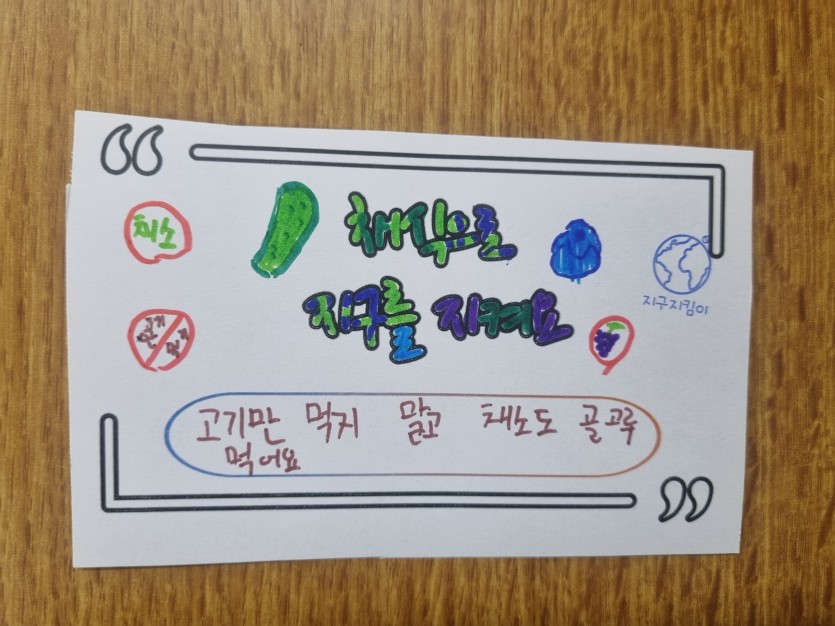 채식으로
지구를 지켜요
채소
고기만
먹기
지구지킴이
고기만 먹지 말고 채소도 골고루
먹어요